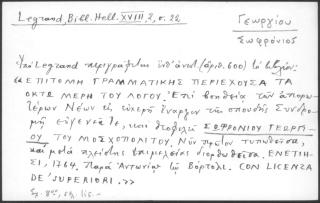 Legrand, Bibl. Hell. XVIII, 2, σ. 22
Γεωργίου
Σωφρόνιος
Ὑπὸ Legrand περιγράφεται ὑπ' ἀριθ. (ἀριθ. 600) τὸ ἑξῆς:
"ΕΠΙΤΟΜΗ ΓΡΑΜΜΑΤΙΚΗΣ ΠΕΡΙΕΧΟΥΣΑ ΤΑ
ΟΚΤΩ ΜΕΡΗ ΤΟΥ ΛΟΓΟΥ. Ἐπὶ βοηθείᾳ τῶν ἀπορω-
τέρων Νέων εἰς εὐχερῆ ἔναρξιν τῆς σπουδῆς Συνδρο-
μῇ εὐγενεῖ τε, καὶ ΣΩΦΡΟΝΙΟΥ ΓΕΩΡΓΙ-
ΟΥ ΤΟΥ ΜΟΣΧΟΠΟΛΙΤΟΥ. Νῦν πρῶτον τυπωθεῖσα,
καὶ μετὰ πλείστης ἐπιμελείας διορθωθεῖσα. ΕΝΕΤΙΗ-
ΣΙ, 1764. Παρὰ Ἀντωνίῳ τῷ Βόρτολι. CON LICENZA
DE' SUPERIORI. "
Σχ. 8ον, σελ.